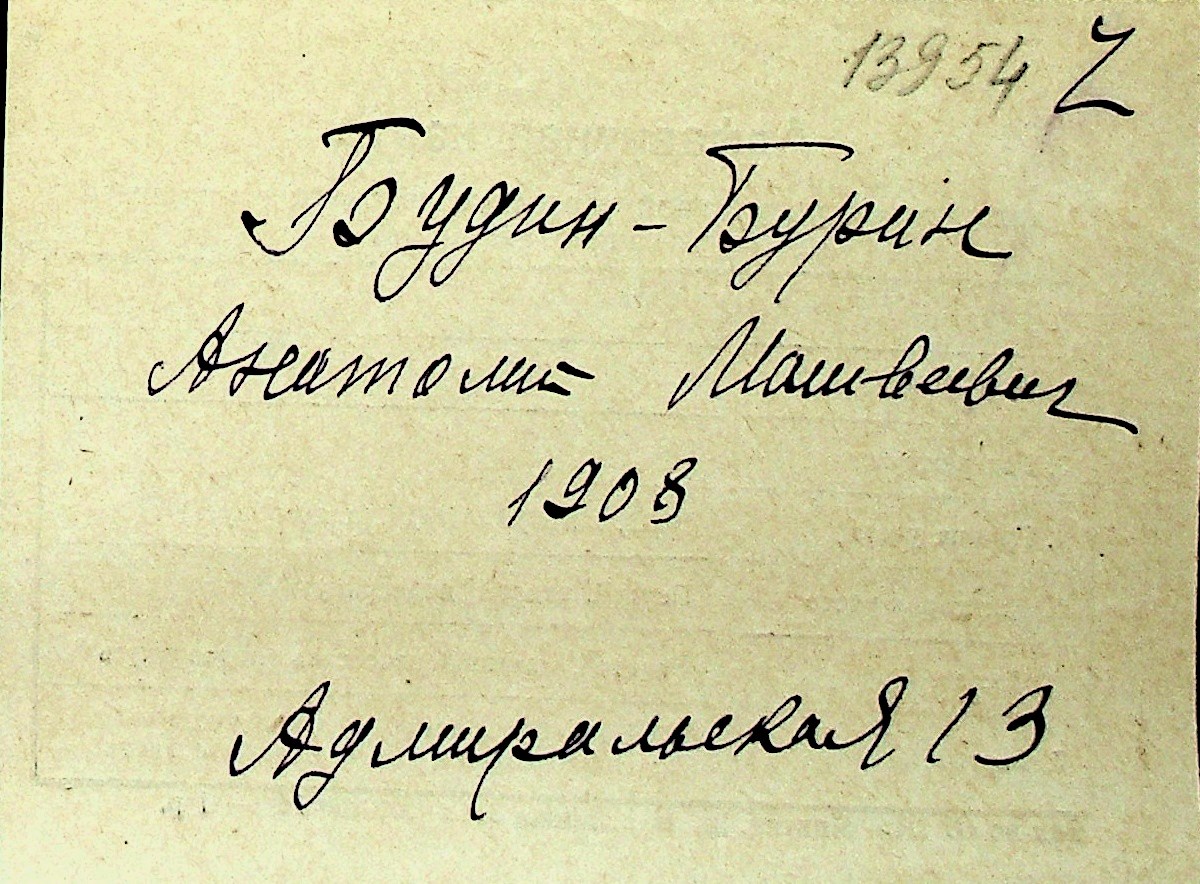 13954 Z
Будин-Бурин
Анатолий Матвеевич
1908
Адмиральская 13